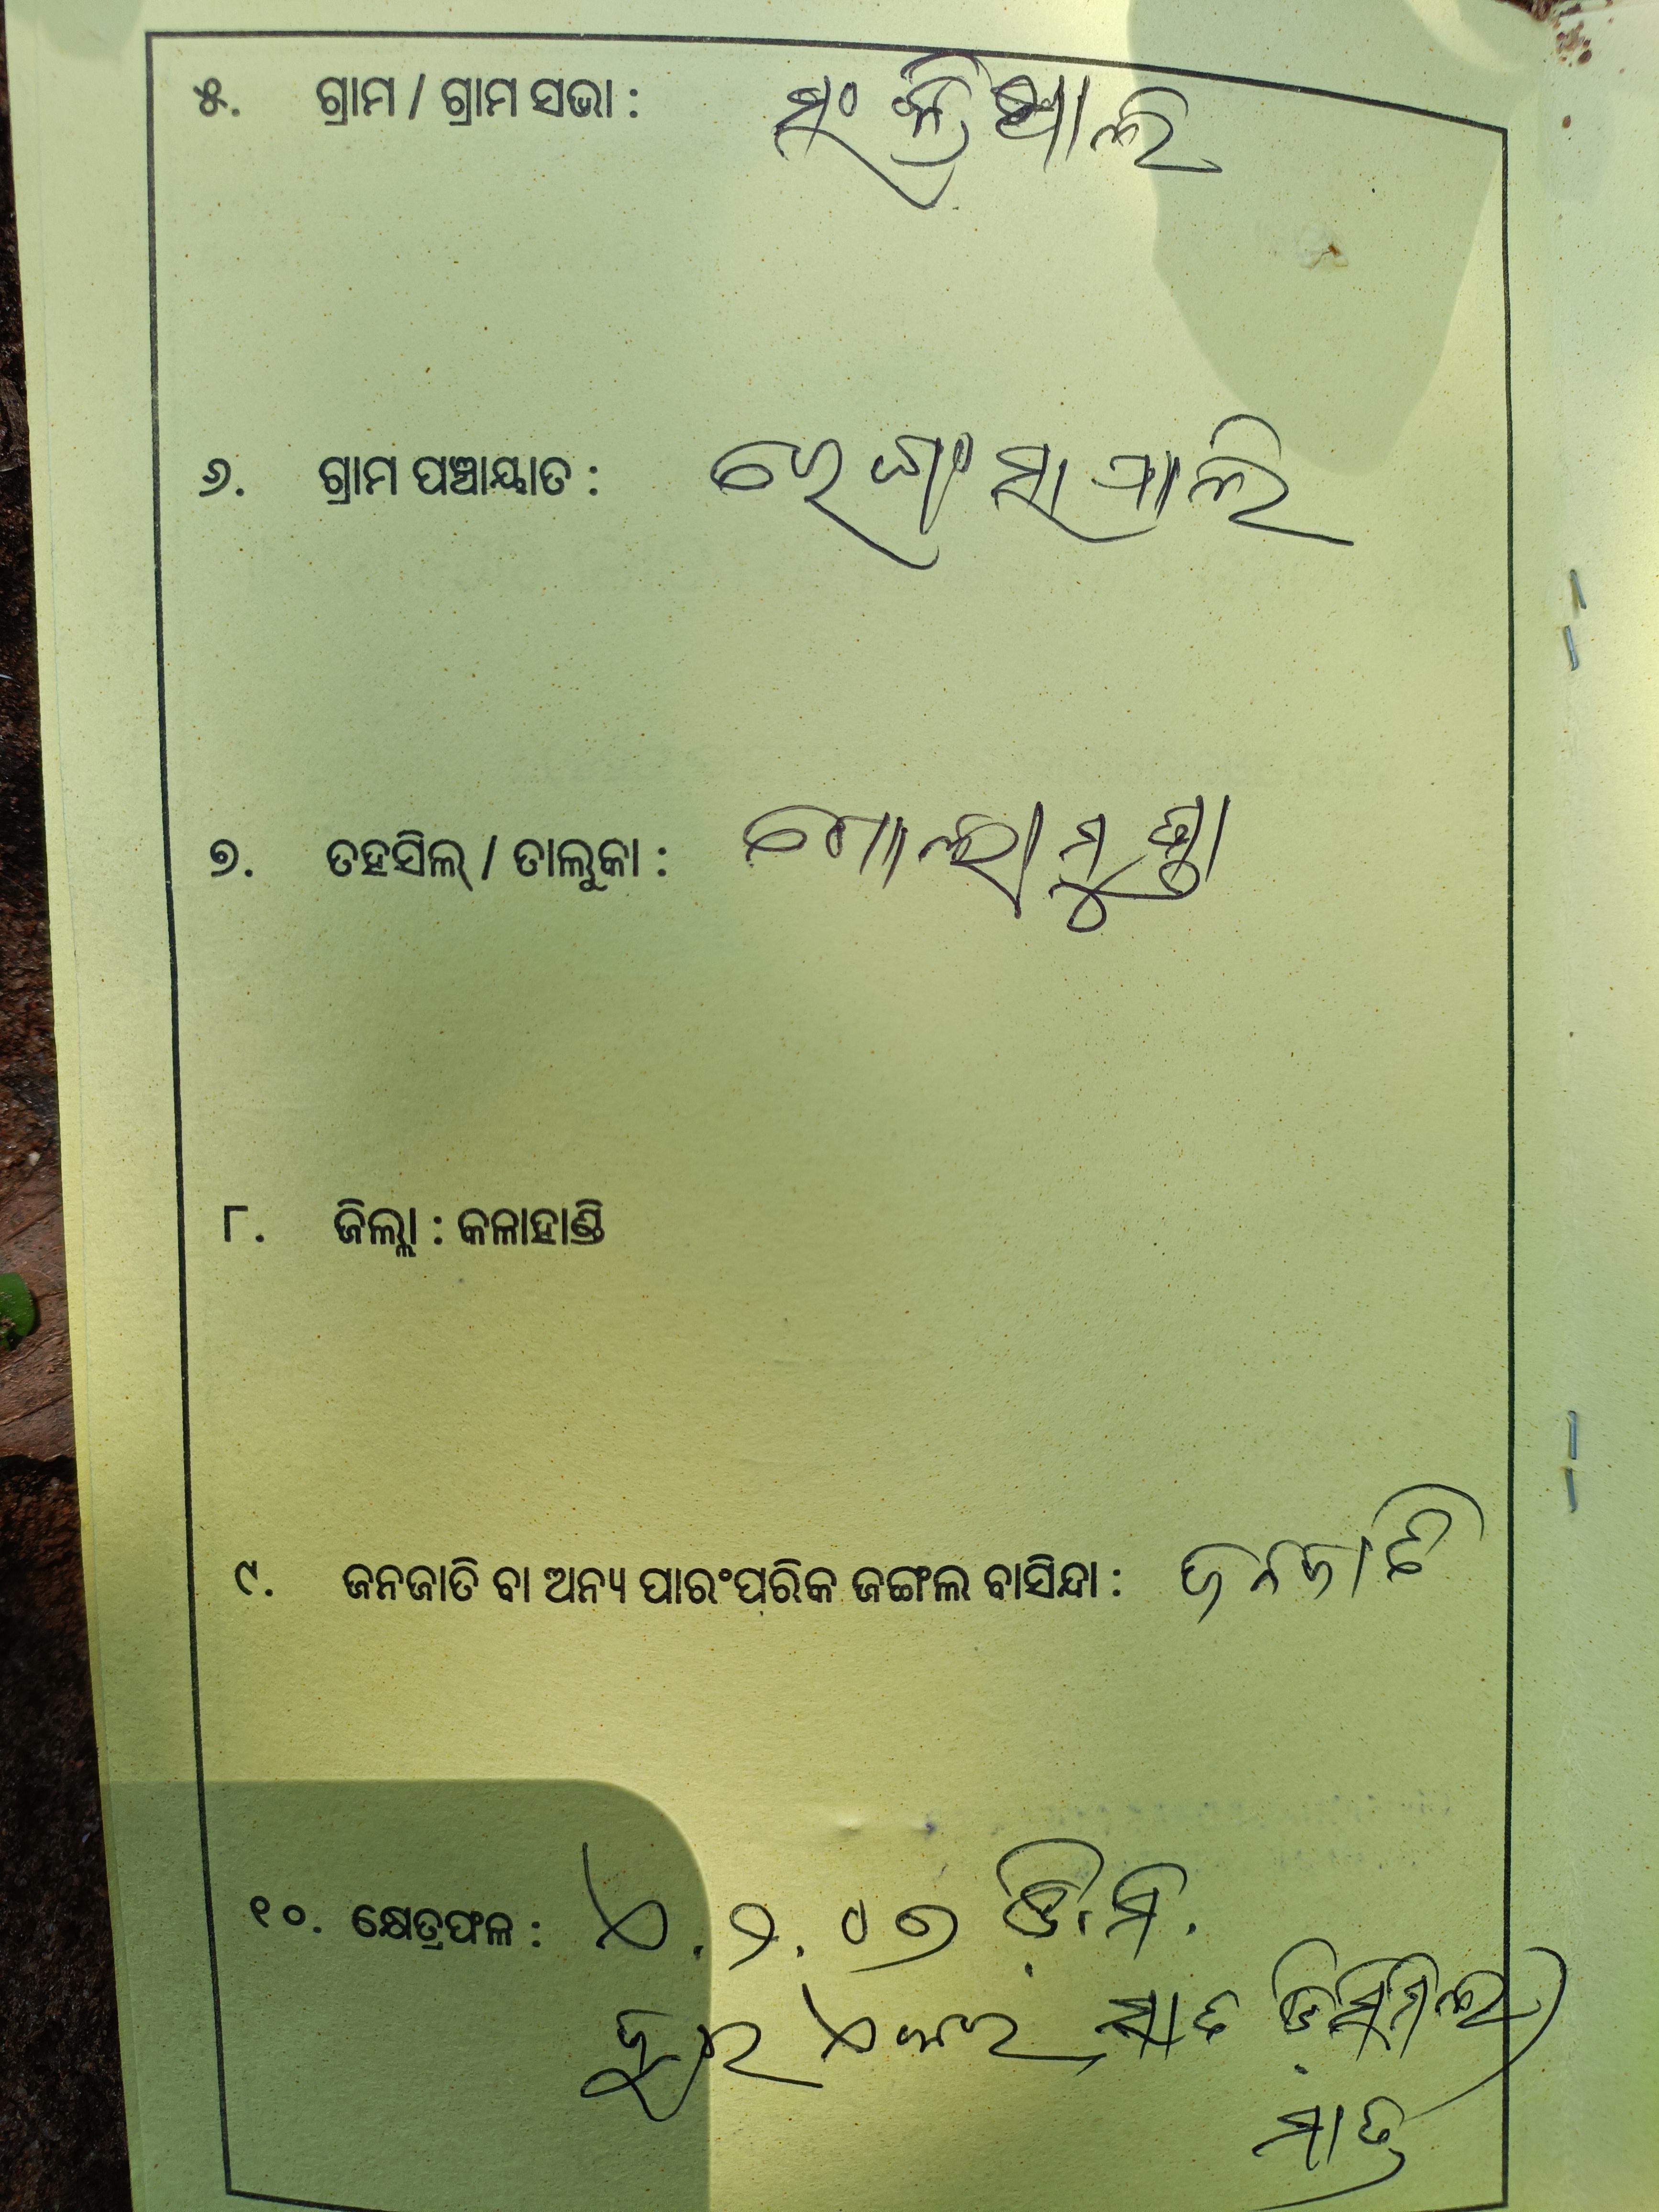 ୫. ଗ୍ରାମ / ଗ୍ରାମ ସଭା :
୬. ଗ୍ରାମ ପଞ୍ଚାୟାତ :
୭. ତହସିଲ୍ / ତାଲୁକା : ଗୋଲାମୁଣ୍ଡା
୮. ଜିଲ୍ଲା : କଳାହାଣ୍ଡି
୯. ଜନଜାତି ବା ଅନ୍ୟ ପାରଂପରିକ ଜଙ୍ଗଲ ବାସିନ୍ଦା : ଜନଜାତି
୧୦. କ୍ଷେତ୍ରଫଳ : ଏ.୨.୦୭ ଡି.ମି.
ଦୁଇ ଏକର ସାତ ଡିସିମିଲ
ମାତ୍ର